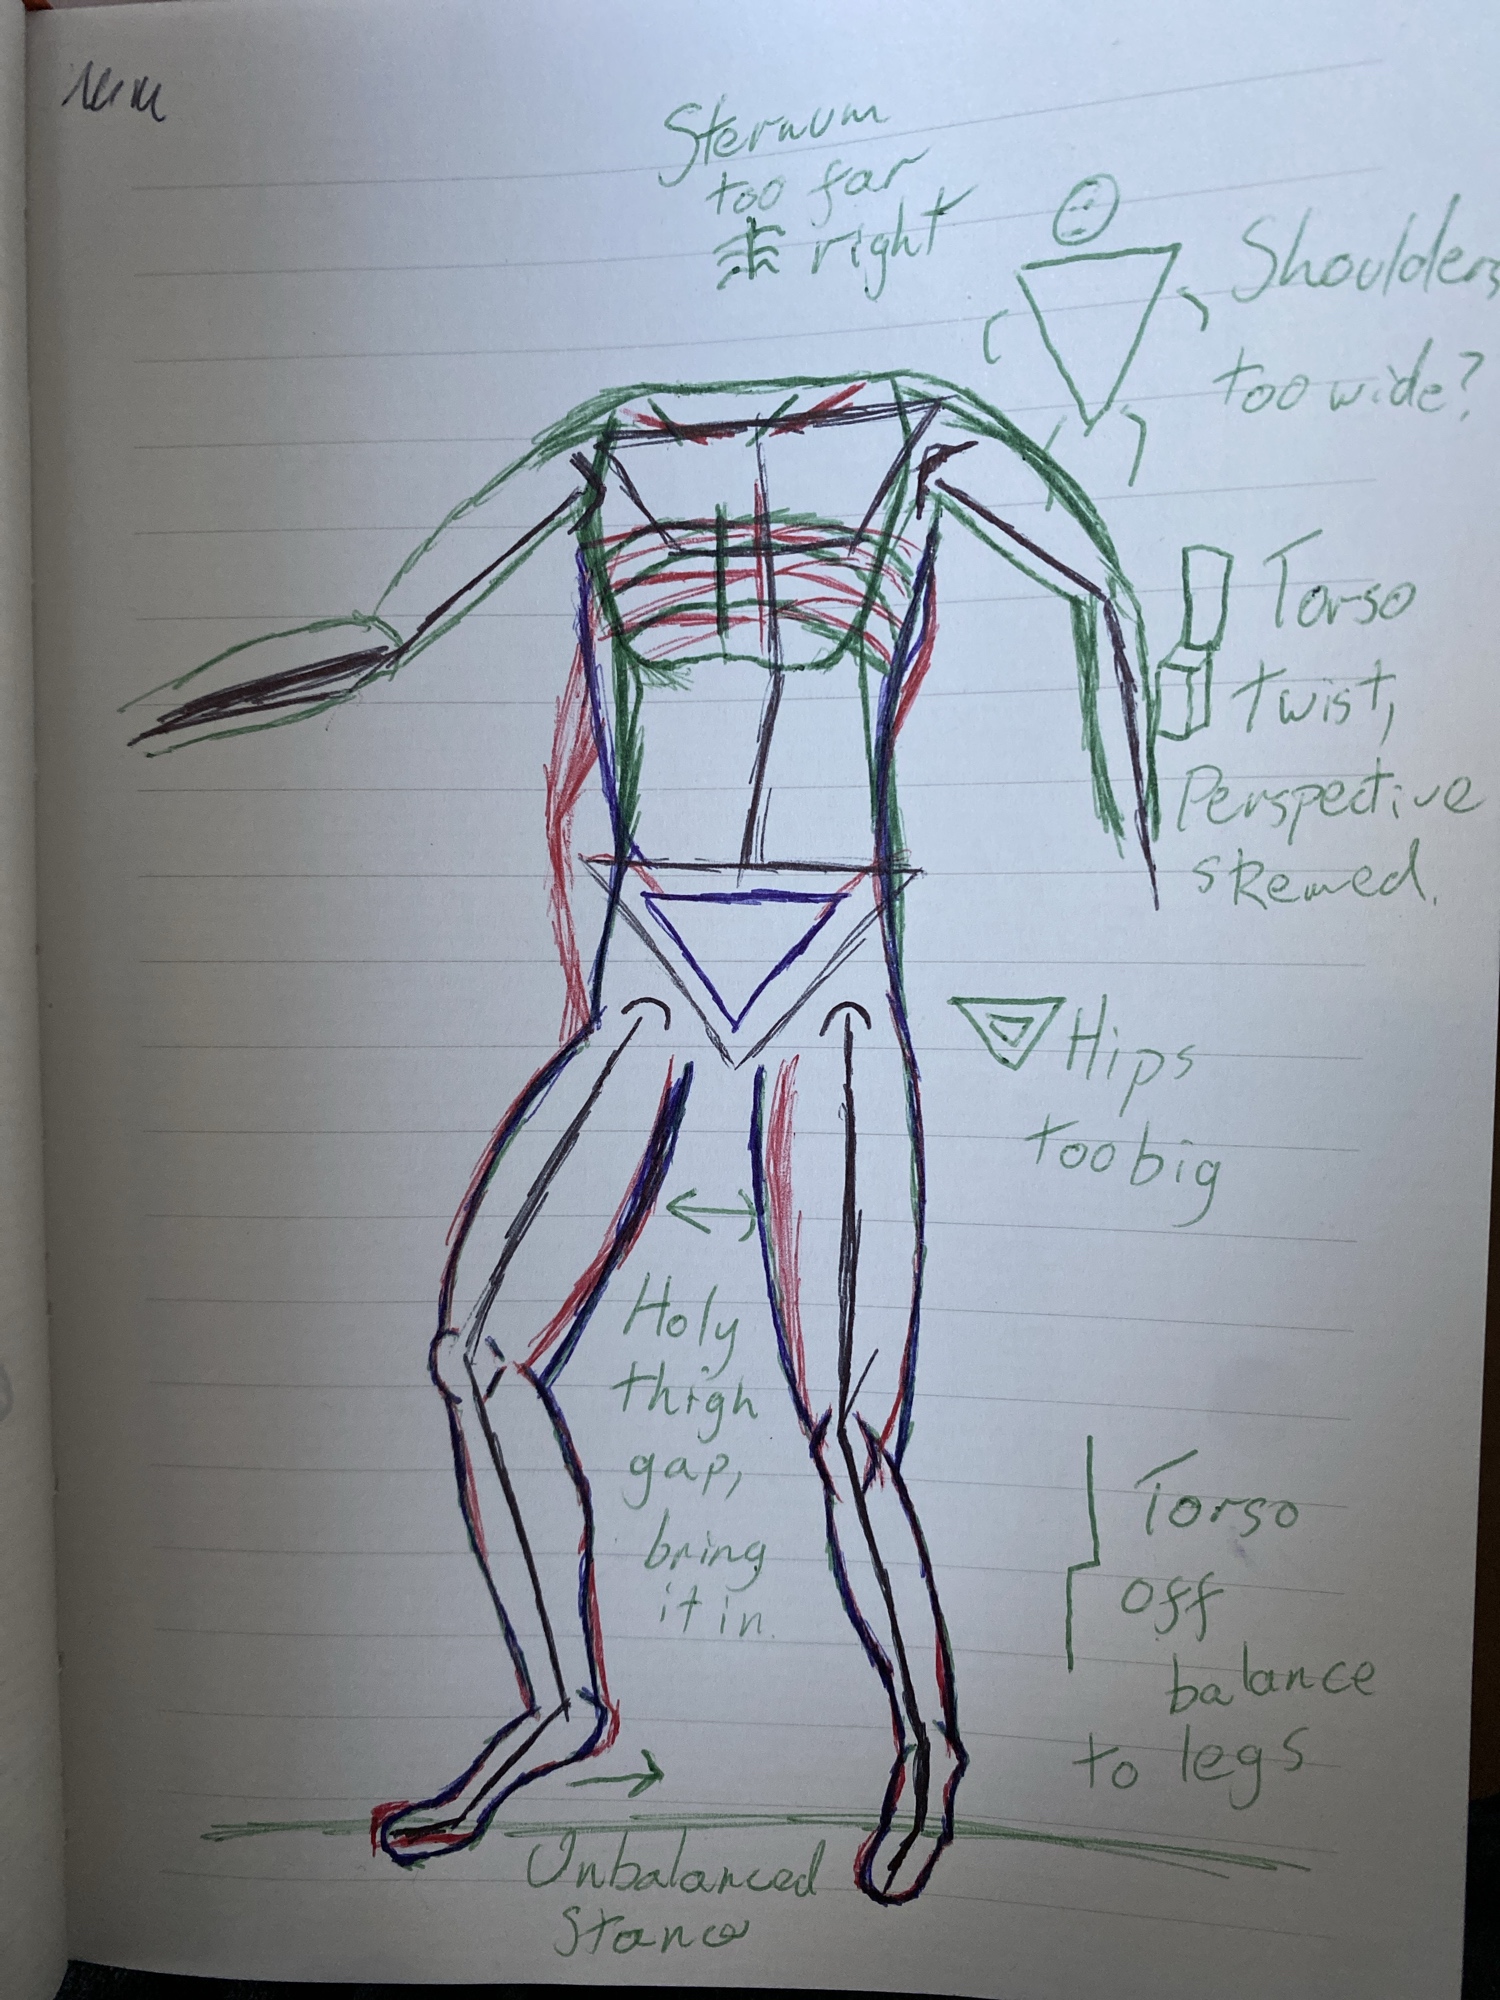 Sternum
too far
right
Shoulders
too wide?
Torso
twist,
Perspective
skewed.
Hips
too big
Holy
thigh
gap,
bring
it in.
Torso
off
balance
to legs
Unbalanced
Stance